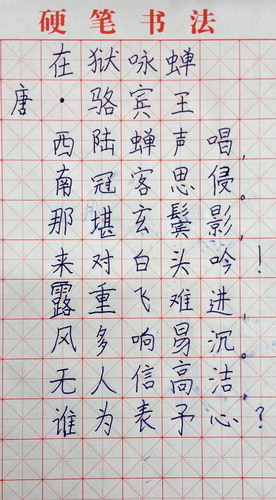 硬笔书法
在狱咏蝉
唐·骆宾王
西陆蝉声唱,
南冠客思侵。
那堪玄鬓影,
来对白头吟!
露重飞难进,
风多响易沉。
无人信高洁,
谁为表予心?